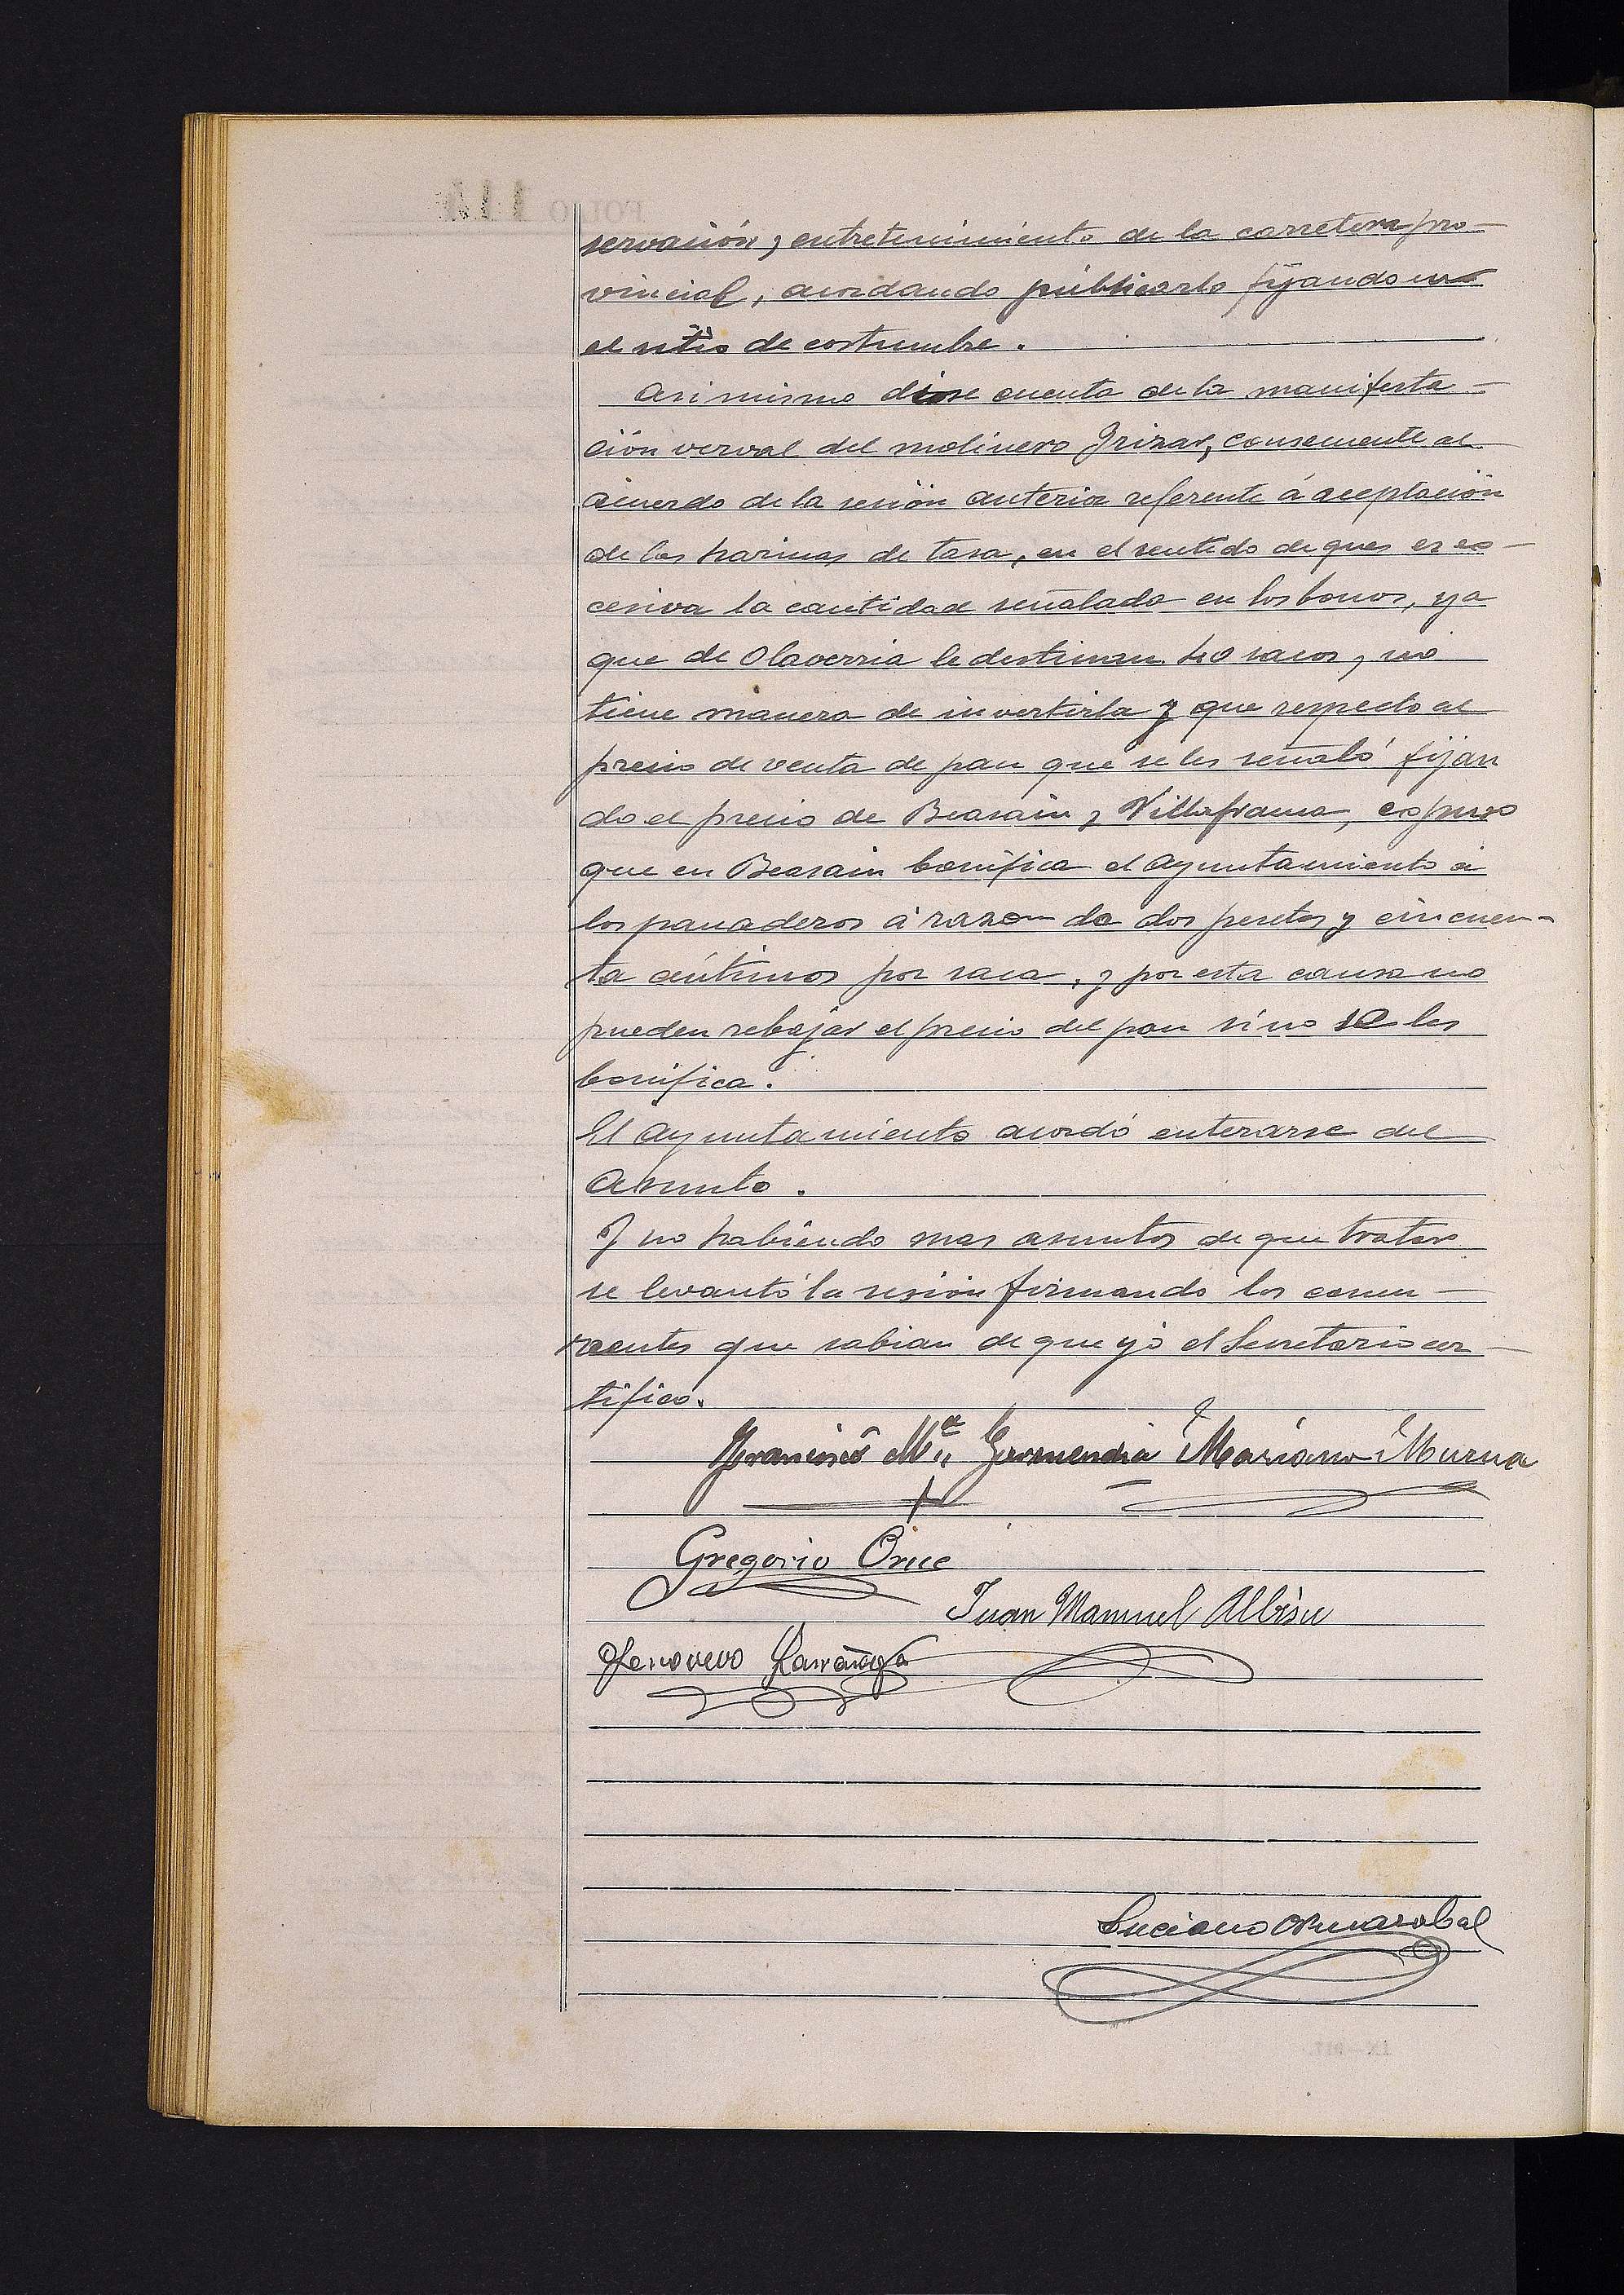 servación y entretenimiento de la carretera pro-
vincial, acordando publicarlo fijando en
el sitio de costumbre.
Asi mismo dióse cuenta de la manifesta-
ción verval del molinero Irizar, consecuente al
acuerdo de la sesión anterior referente á aceptación
de las harinas de tasa, en el sentido de que es es-
cesiva la cantidad señalada en los bonos, ya
que de Olaverria le destinan 40 sacos, no
tiene manera de invertirla y que respecto al
precio de venta de pan que se les señaló fijan
do el precio de Beasain y Villafranca, expuso
que en Beasain bonifica el Ayuntamiento á
los panaderos á razon de dos pesetas y cincuen-
ta céntimos por saca, y por esta causa no
pueden rebajar el precio del pan si no se les
bonifica.
El Ayuntamiento acordó enterarse del
asunto.
Y no habiendo mas asuntos de que tratar
se levantó la sesión firmando los concu-
rrentes que sabian de que yó el Secretario cer-
tifico.
Francisco Mª Garmendia Mariano Murua
Gregorio Orue
Juan Manuel Albisu
Genovevo Larrañaga
Luciano Ormazabal
FOLIO 114